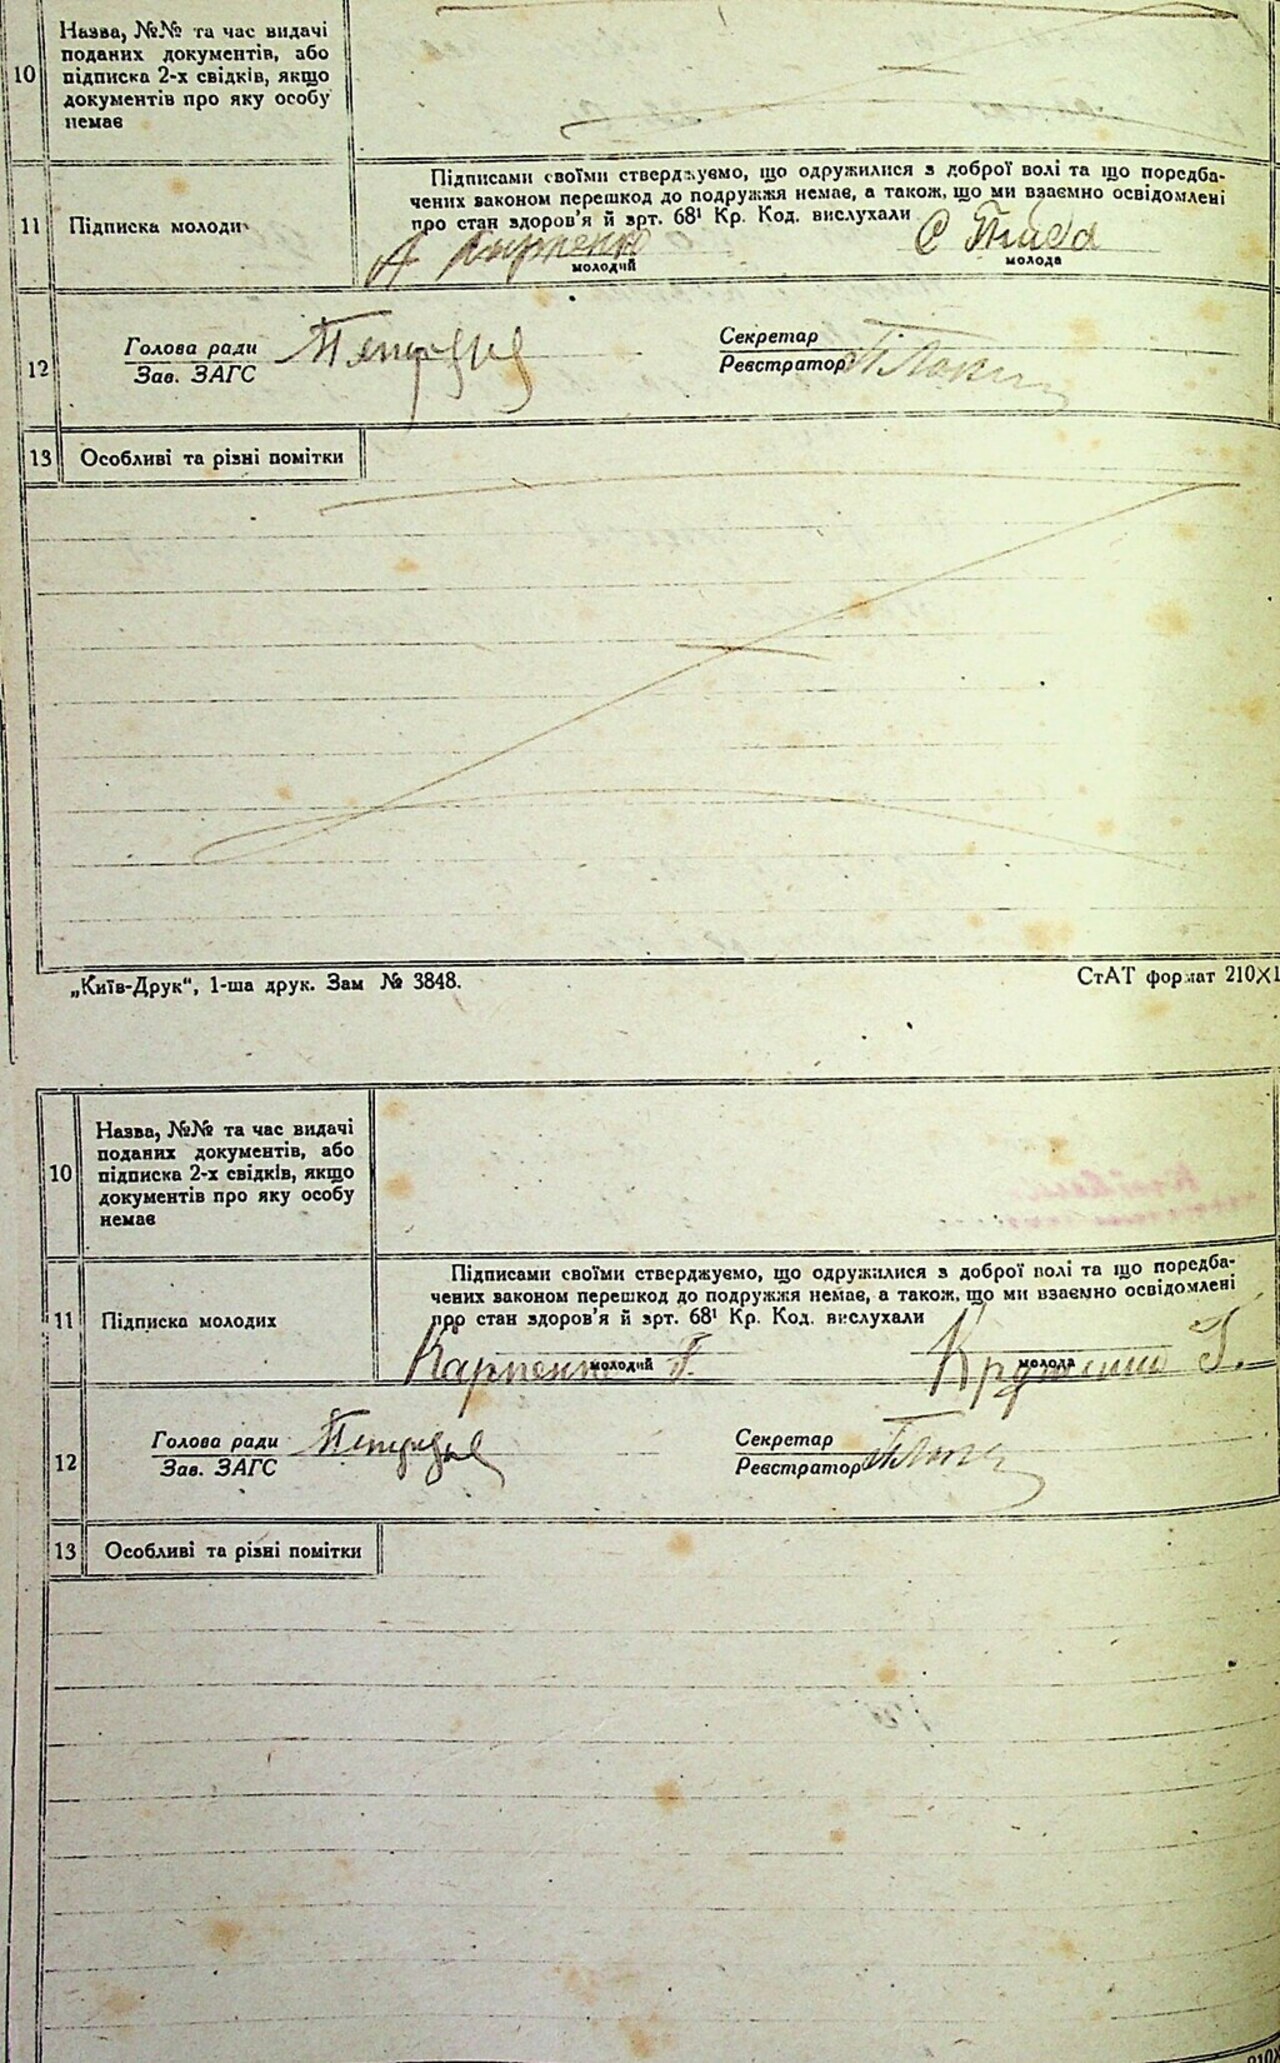 10
Назва, №№ та час видачі
поданих документів, або
підписка 2-х свідків, якщо
документів про яку особу
немає
11
Підписка молоди
Підписами своїми стверджуємо, що одружилися з доброї волі та що поредба-
чених законом перешкод до подружжя немає, а також, що ми взаємно освідомлені
про стан здоров'я й врт. 68¹ Кр. Код. вислухали
молодий
молода
12
Голова ради
Зав. ЗАГС
Секретар
Реєстратор
13
Особливі та різні помітки
„Київ-Друк“, 1-ша друк. Зам № 3848.
СтАТ формат 210×1
10
Назва, №№ та час видачі
поданих документів, або
підписка 2-х свідків, якщо
документів про яку особу
немає
11
Підписка молодих
Підписами своїми стверджуємо, що одружилися з доброї волі та що поредба-
чених законом перешкод до подружжя немає, а також, що ми взаємно освідомлені
про стан здоров'я й врт. 68¹ Кр. Код. вислухали
Карпенко П.
молодий
молода
12
Голова ради
Зав. ЗАГС
Секретар
Реєстратор
13
Особливі та різні помітки